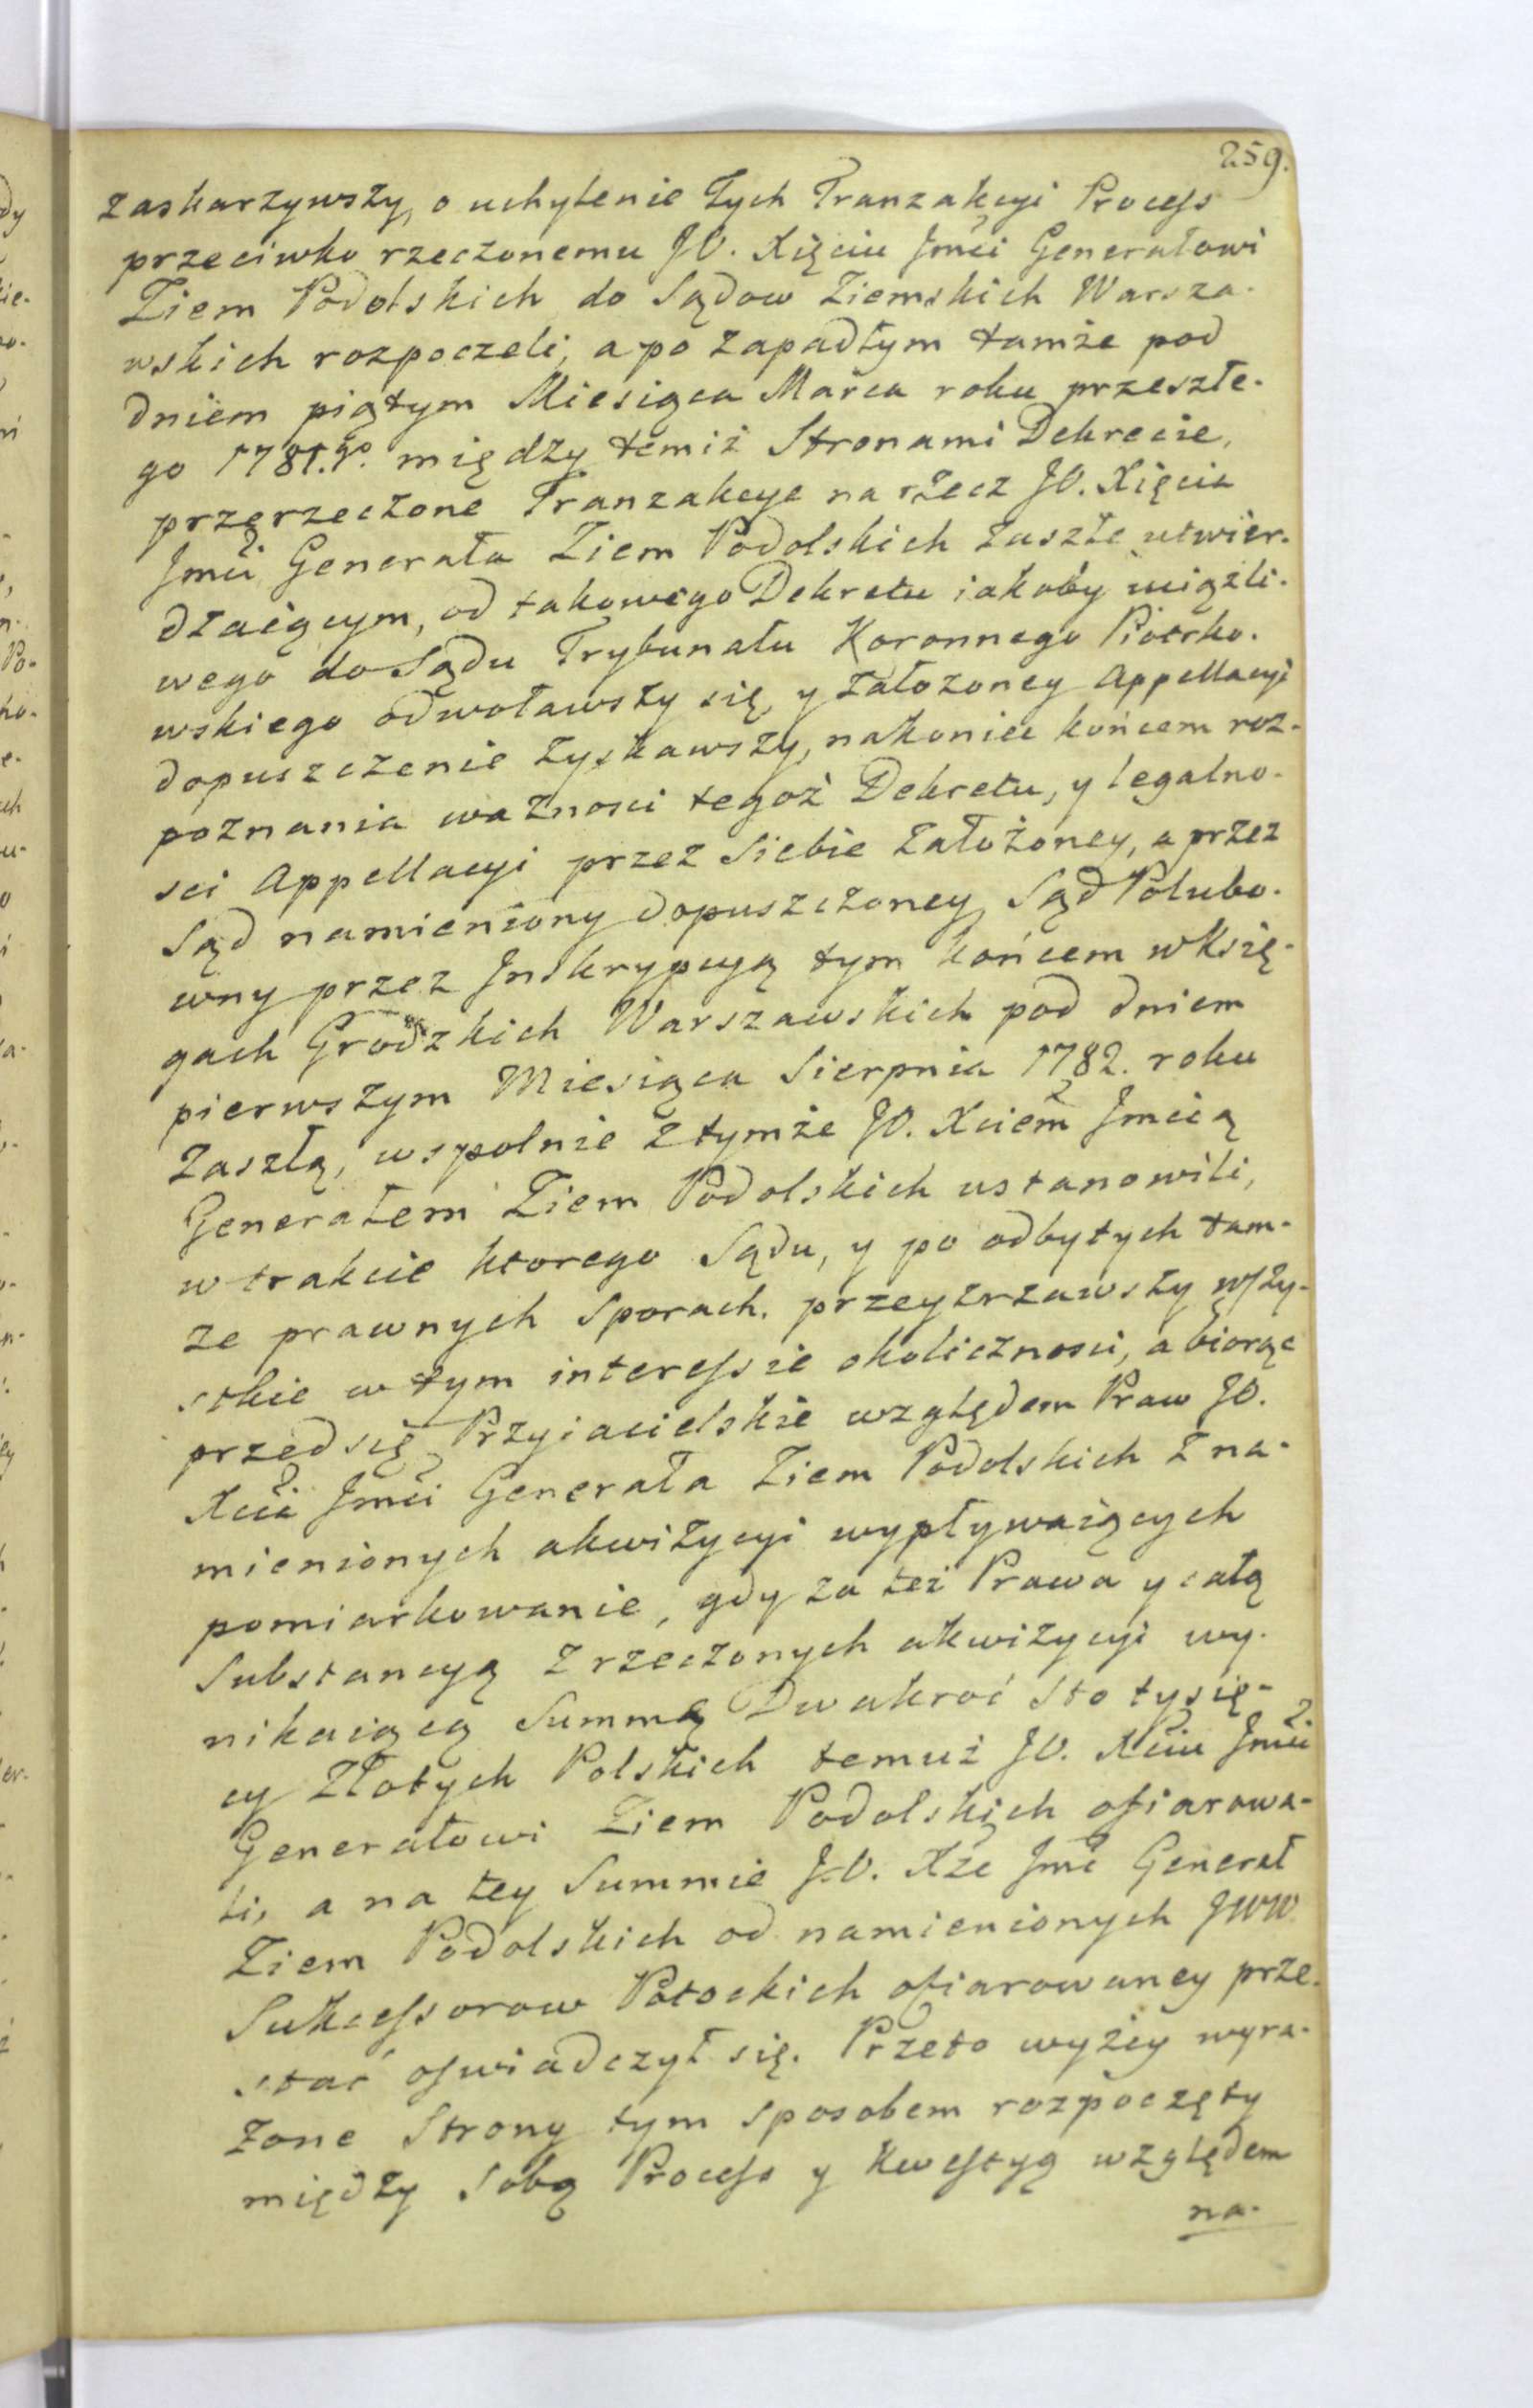 259.
zaskarzywszy, o uchylenie tych Tranzakcyi Process
przeciwko rzeczonemu JO. Xięciu Jmći Generałowi
Ziem Podolskich do Sądow Ziemskich Warsza-
wskich rozpoczeli, a po zapadłym tamże pod
dniem piątym Miesiąca Marca roku przeszłe-
go 1781.go między temiż Stronami Dekrecie,
przerzeczone Tranzakcye na rzecz JO. Xięcia
Jmći Generała Ziem Podolskich zaszłe utwier-
dzaiącym, od takowego Dekretu iakoby uciążli-
wego do Sądu Trybunału Koronnego Piotrko-
wskiego odwoławszy się, y założoney Appellacyi
dopuszczenie zyskawszy, nakoniec końcem roz-
poznania ważnosci tegoż Dekretu, y legalno-
sci Appellacyi przez siebie założoney, a przez
Sąd namieniony dopuszczoney, Sąd Polubo-
wny przez Jnskrypcyą tym końcem w Księ-
gach Grodzkich Warszawskich pod dniem
pierwszym Miesiąca Sierpnia 1782. roku
zaszłą, wspolnie z tymże JO. Xciem Jmcią
Generałem Ziem Podolskich ustanowili,
w trakcie ktorego Sądu, y po odbytych tam-
że prawnych sporach. przeyzrzawszy wszy-
stkie w tym interessie okolicznosci, a biorąc
przed się Przyiacielskie względem Praw JO.
Xcia Jmći Generała Ziem Podolskich z na-
mienionych akwizycyi wypływaiących
pomiarkowanie, gdy za też Prawa y całą
Substancyą z rzeczonych akwizycyi wy-
nikaiącą Summę Dwakroć sto tysię-
cy Złotych Polskich temuż JO. Xciu Jmći
Generałowi Ziem Podolskich ofiarowa-
li, a na tey Summie J.O. Xże Jmć Generał
Ziem Podolskich od namienionych JWW.
Sukcessorow Potockich ofiarowaney prze-
stać oswiadczył się. Przeto wyżey wyra-
żone Strony tym sposobem rozpoczęty
między sobą Process y kwestyą względem
na-